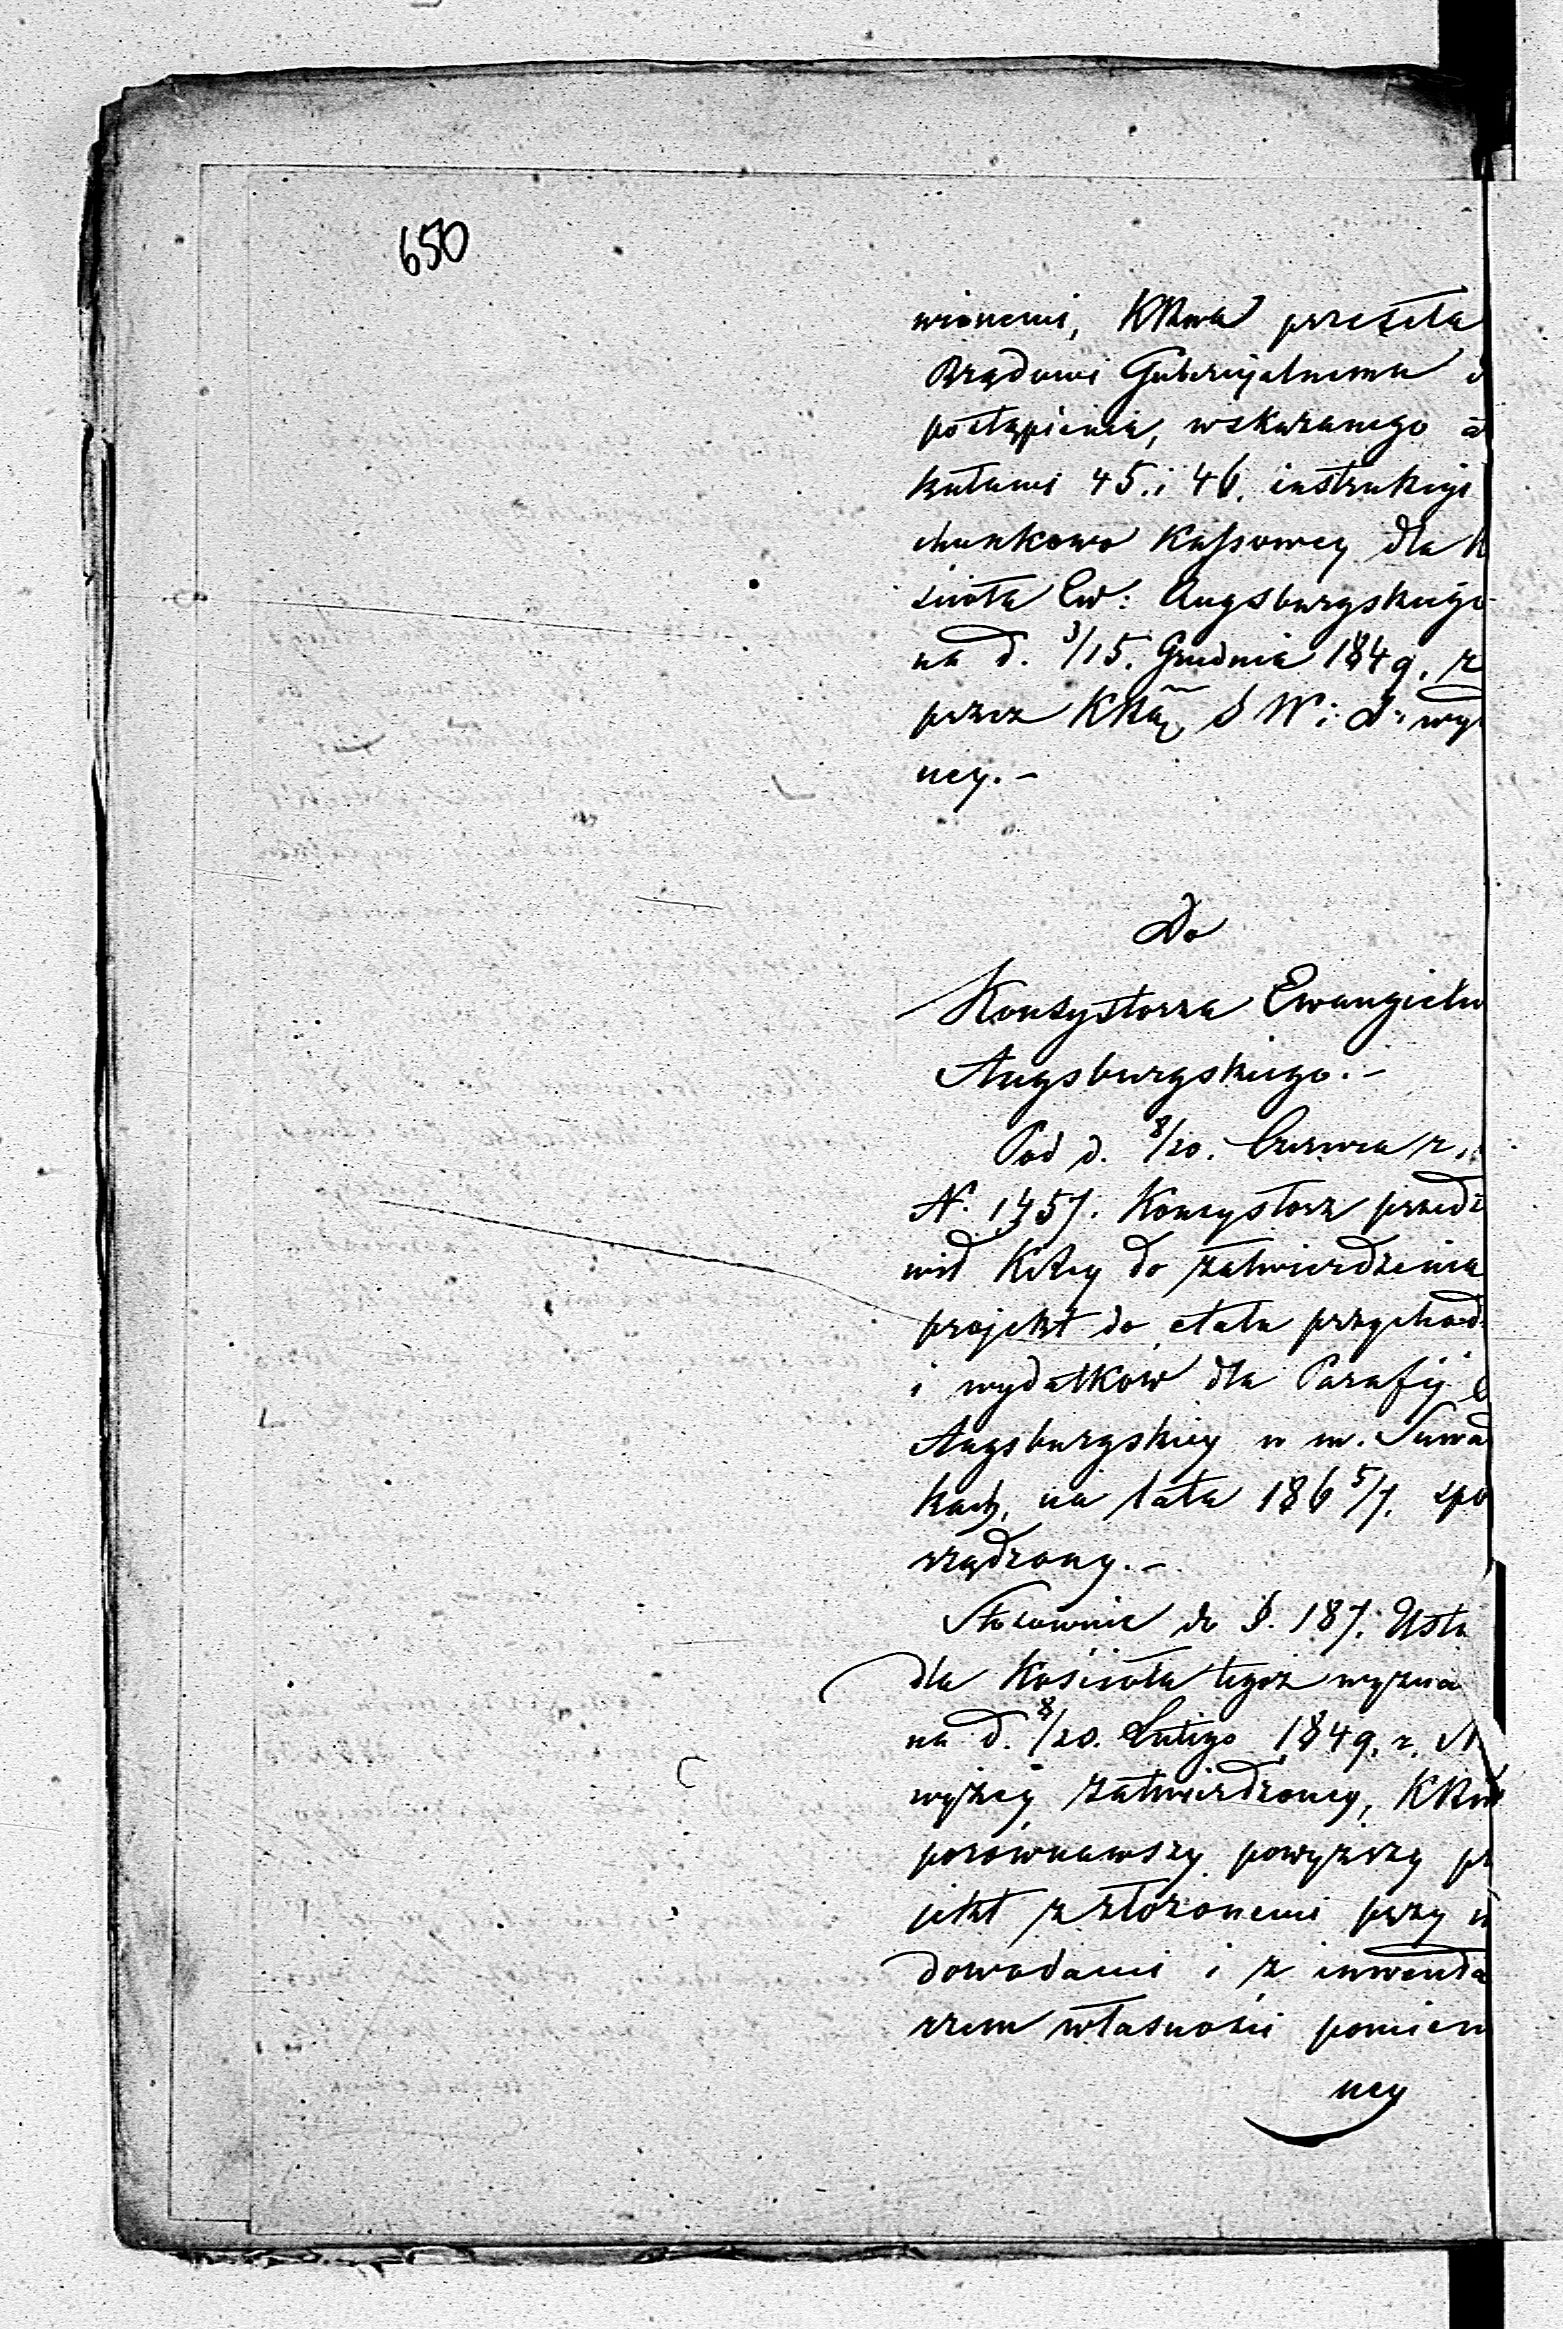 650
wionemi, KRwa przeseła
Rządowi Gubernjalnemu d
postąpienia, wskazanego a
kułami 45. i 46. instrukcyi
chunkowo Kassowey dla K
ścioła Ew: Augsburgskiego
na d. 3/15. Grudnia 1849. r
przez KRą S W: i D: wy
ney. -
Do
Konsystorza Ewangielic
Augsburgskiego. -
Pod d. 8/20. Czerwca r.
N. 1457. Konsystorz przed
wił KRey do zatwierdzenia
projekt do etatu przychod
i wydatkow dla Parafij E
Augsburgskiey w m. Suwał
kach, na lata 186 5/7. spo
rządzony. -
Stosownie do §. 187. Usta
dla Kościoła tegoż wyzna
na d. 8/20. Lutego 1849. r. N
wyżey zatwierdzoney, KRwa
porównawszy powyższy pr
jekt z złożonemi przy n
dowodami i z inwenta
rzem własności pomien
ney